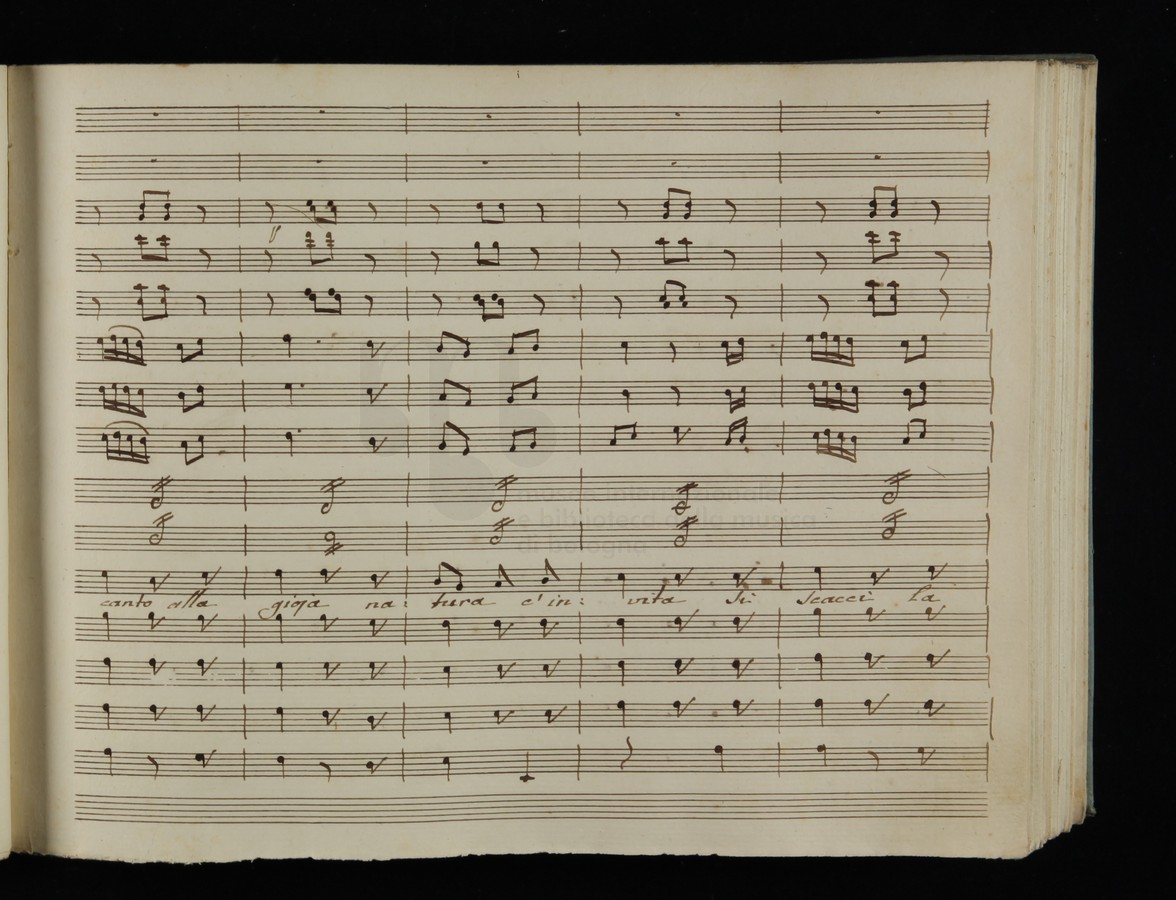 canto alla gioja na: tura c'in: vita Si scacci la
museo internazionale
e biblioteca della musica
di bologna